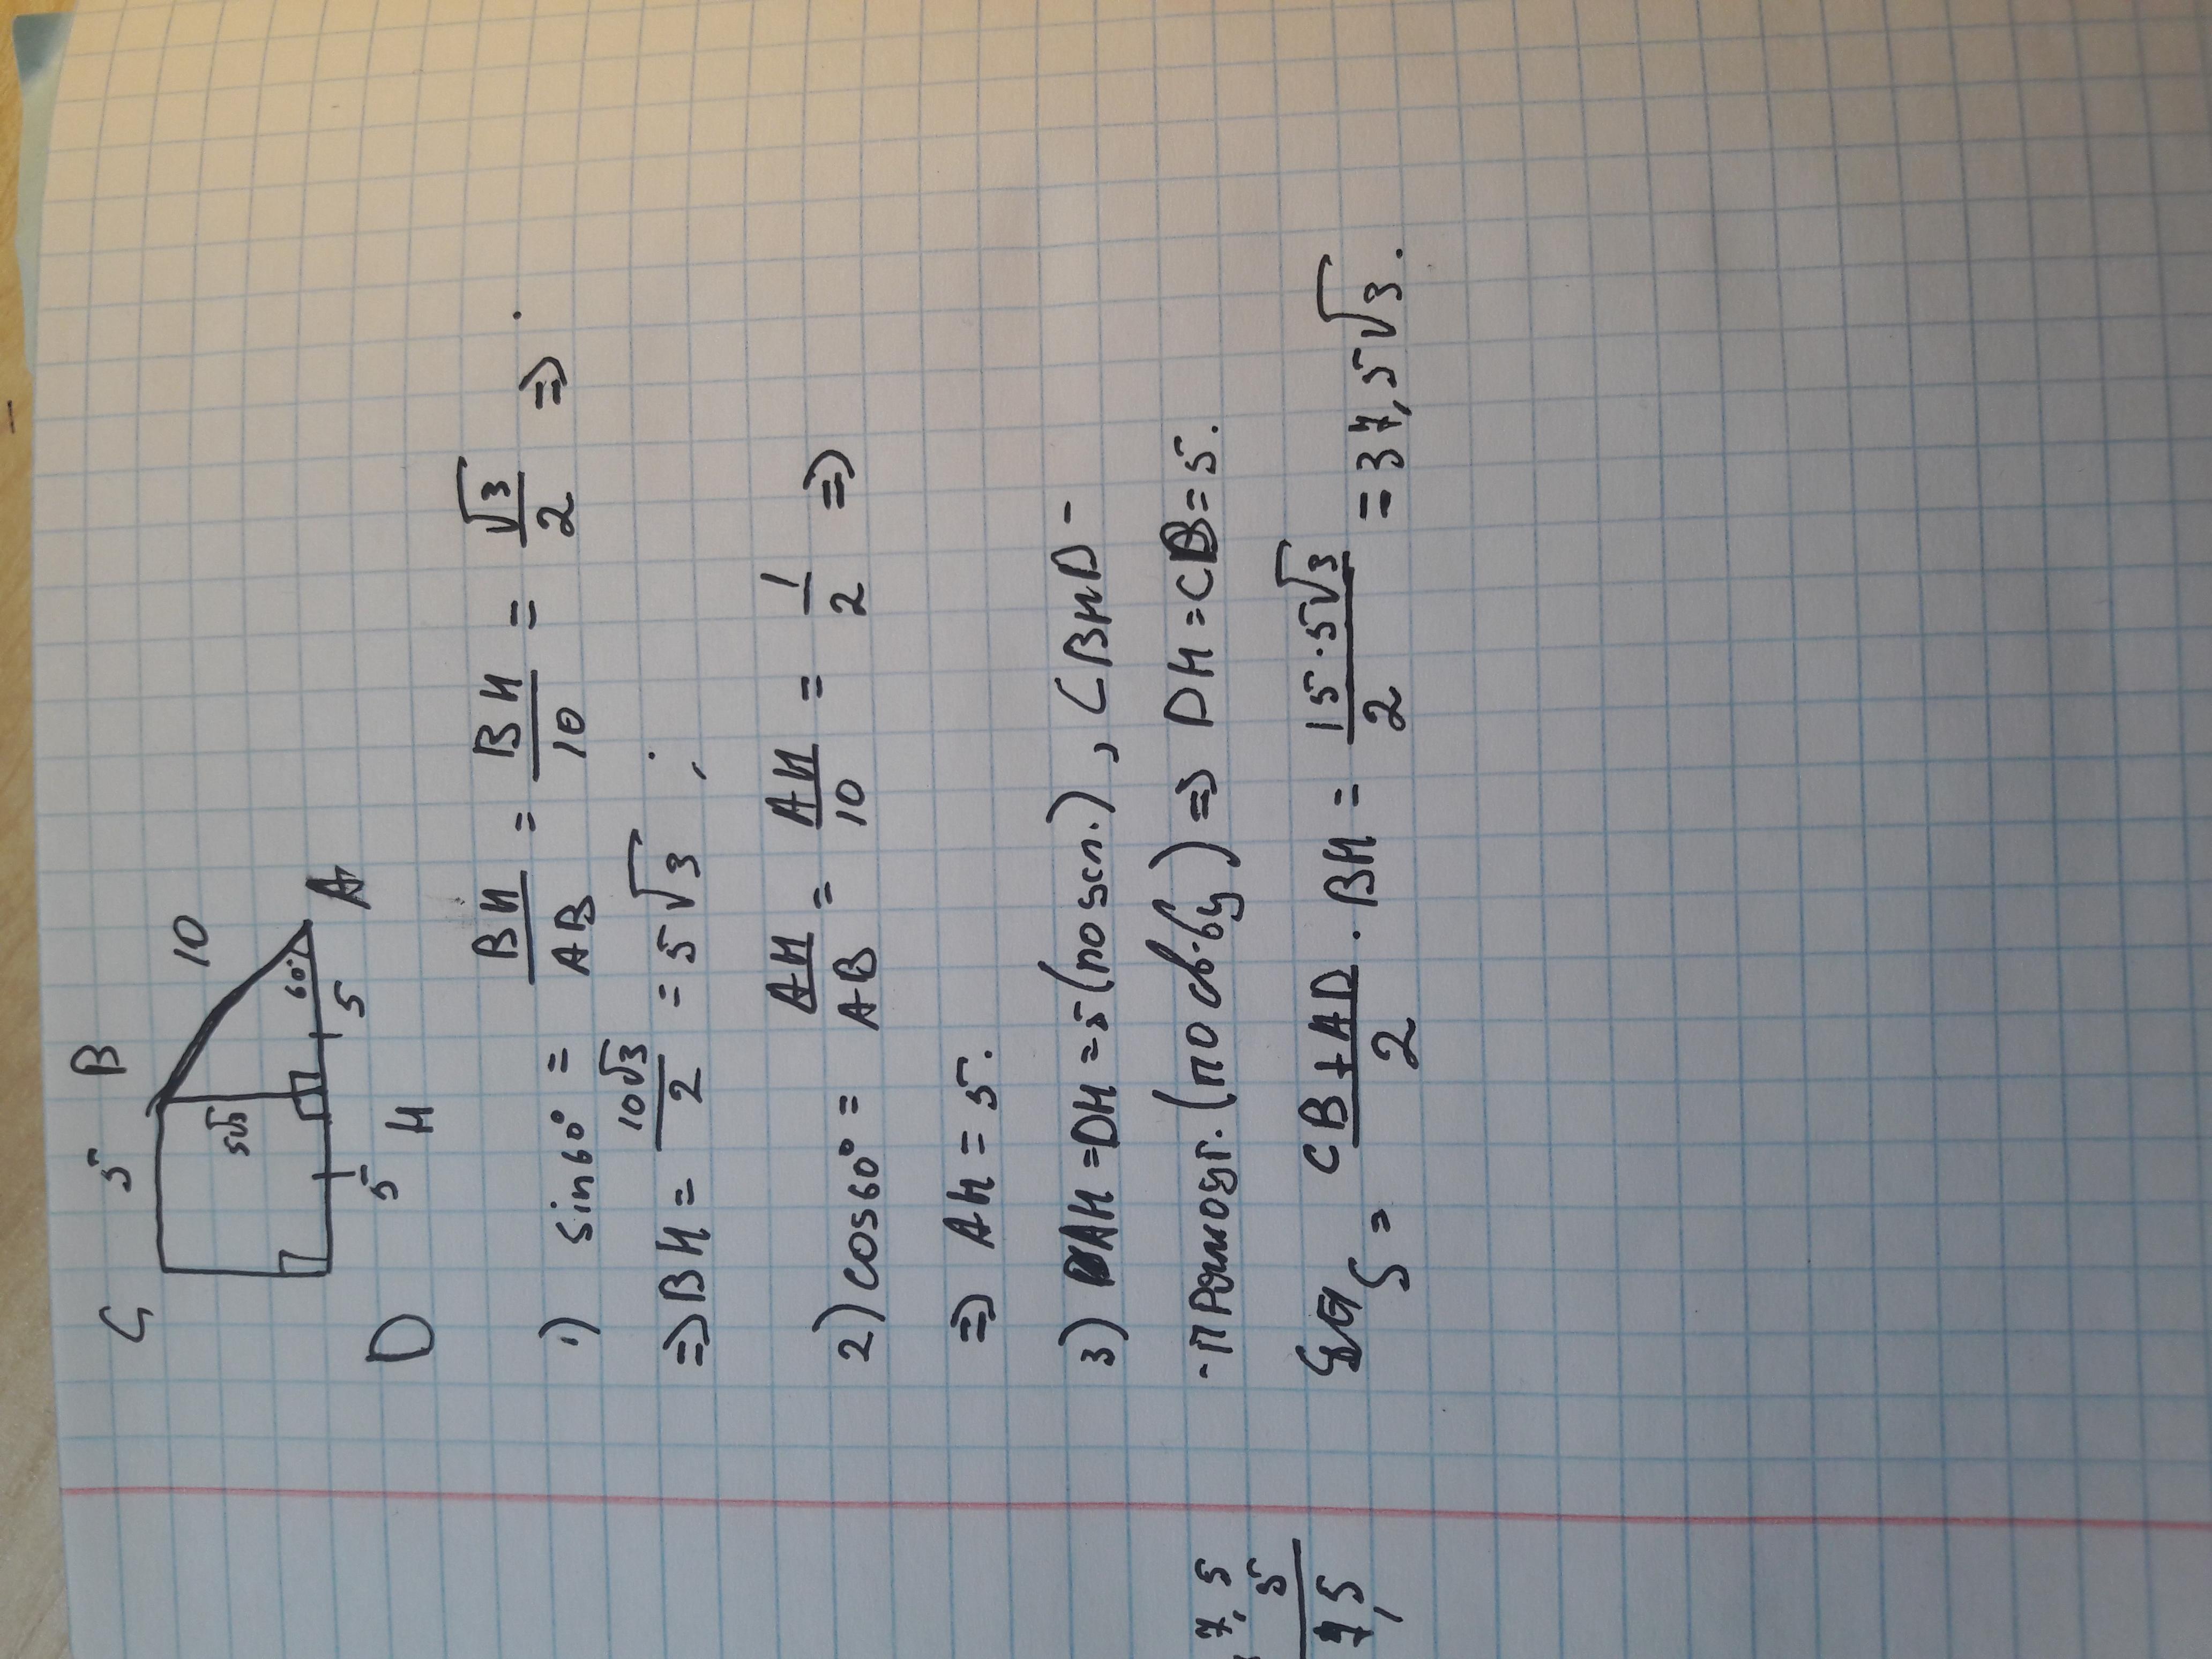 C 5 B
10
5√3
60°
D 5 H 5 A
1) sin60° = BH/AB = BH/10 = √3/2 =>
=> BH = 10√3/2 = 5√3 ;
2) cos60° = AH/AB = AH/10 = 1/2 =>
=> AH = 5.
3) AH = DH = 5 (по усл.), CBHD -
- прямоуг. (по св-ву) => DH = CB = 5.
S = CB + AD/2 · BH = 15·5√3/2 = 37,5√3.
7,5
5
7,5